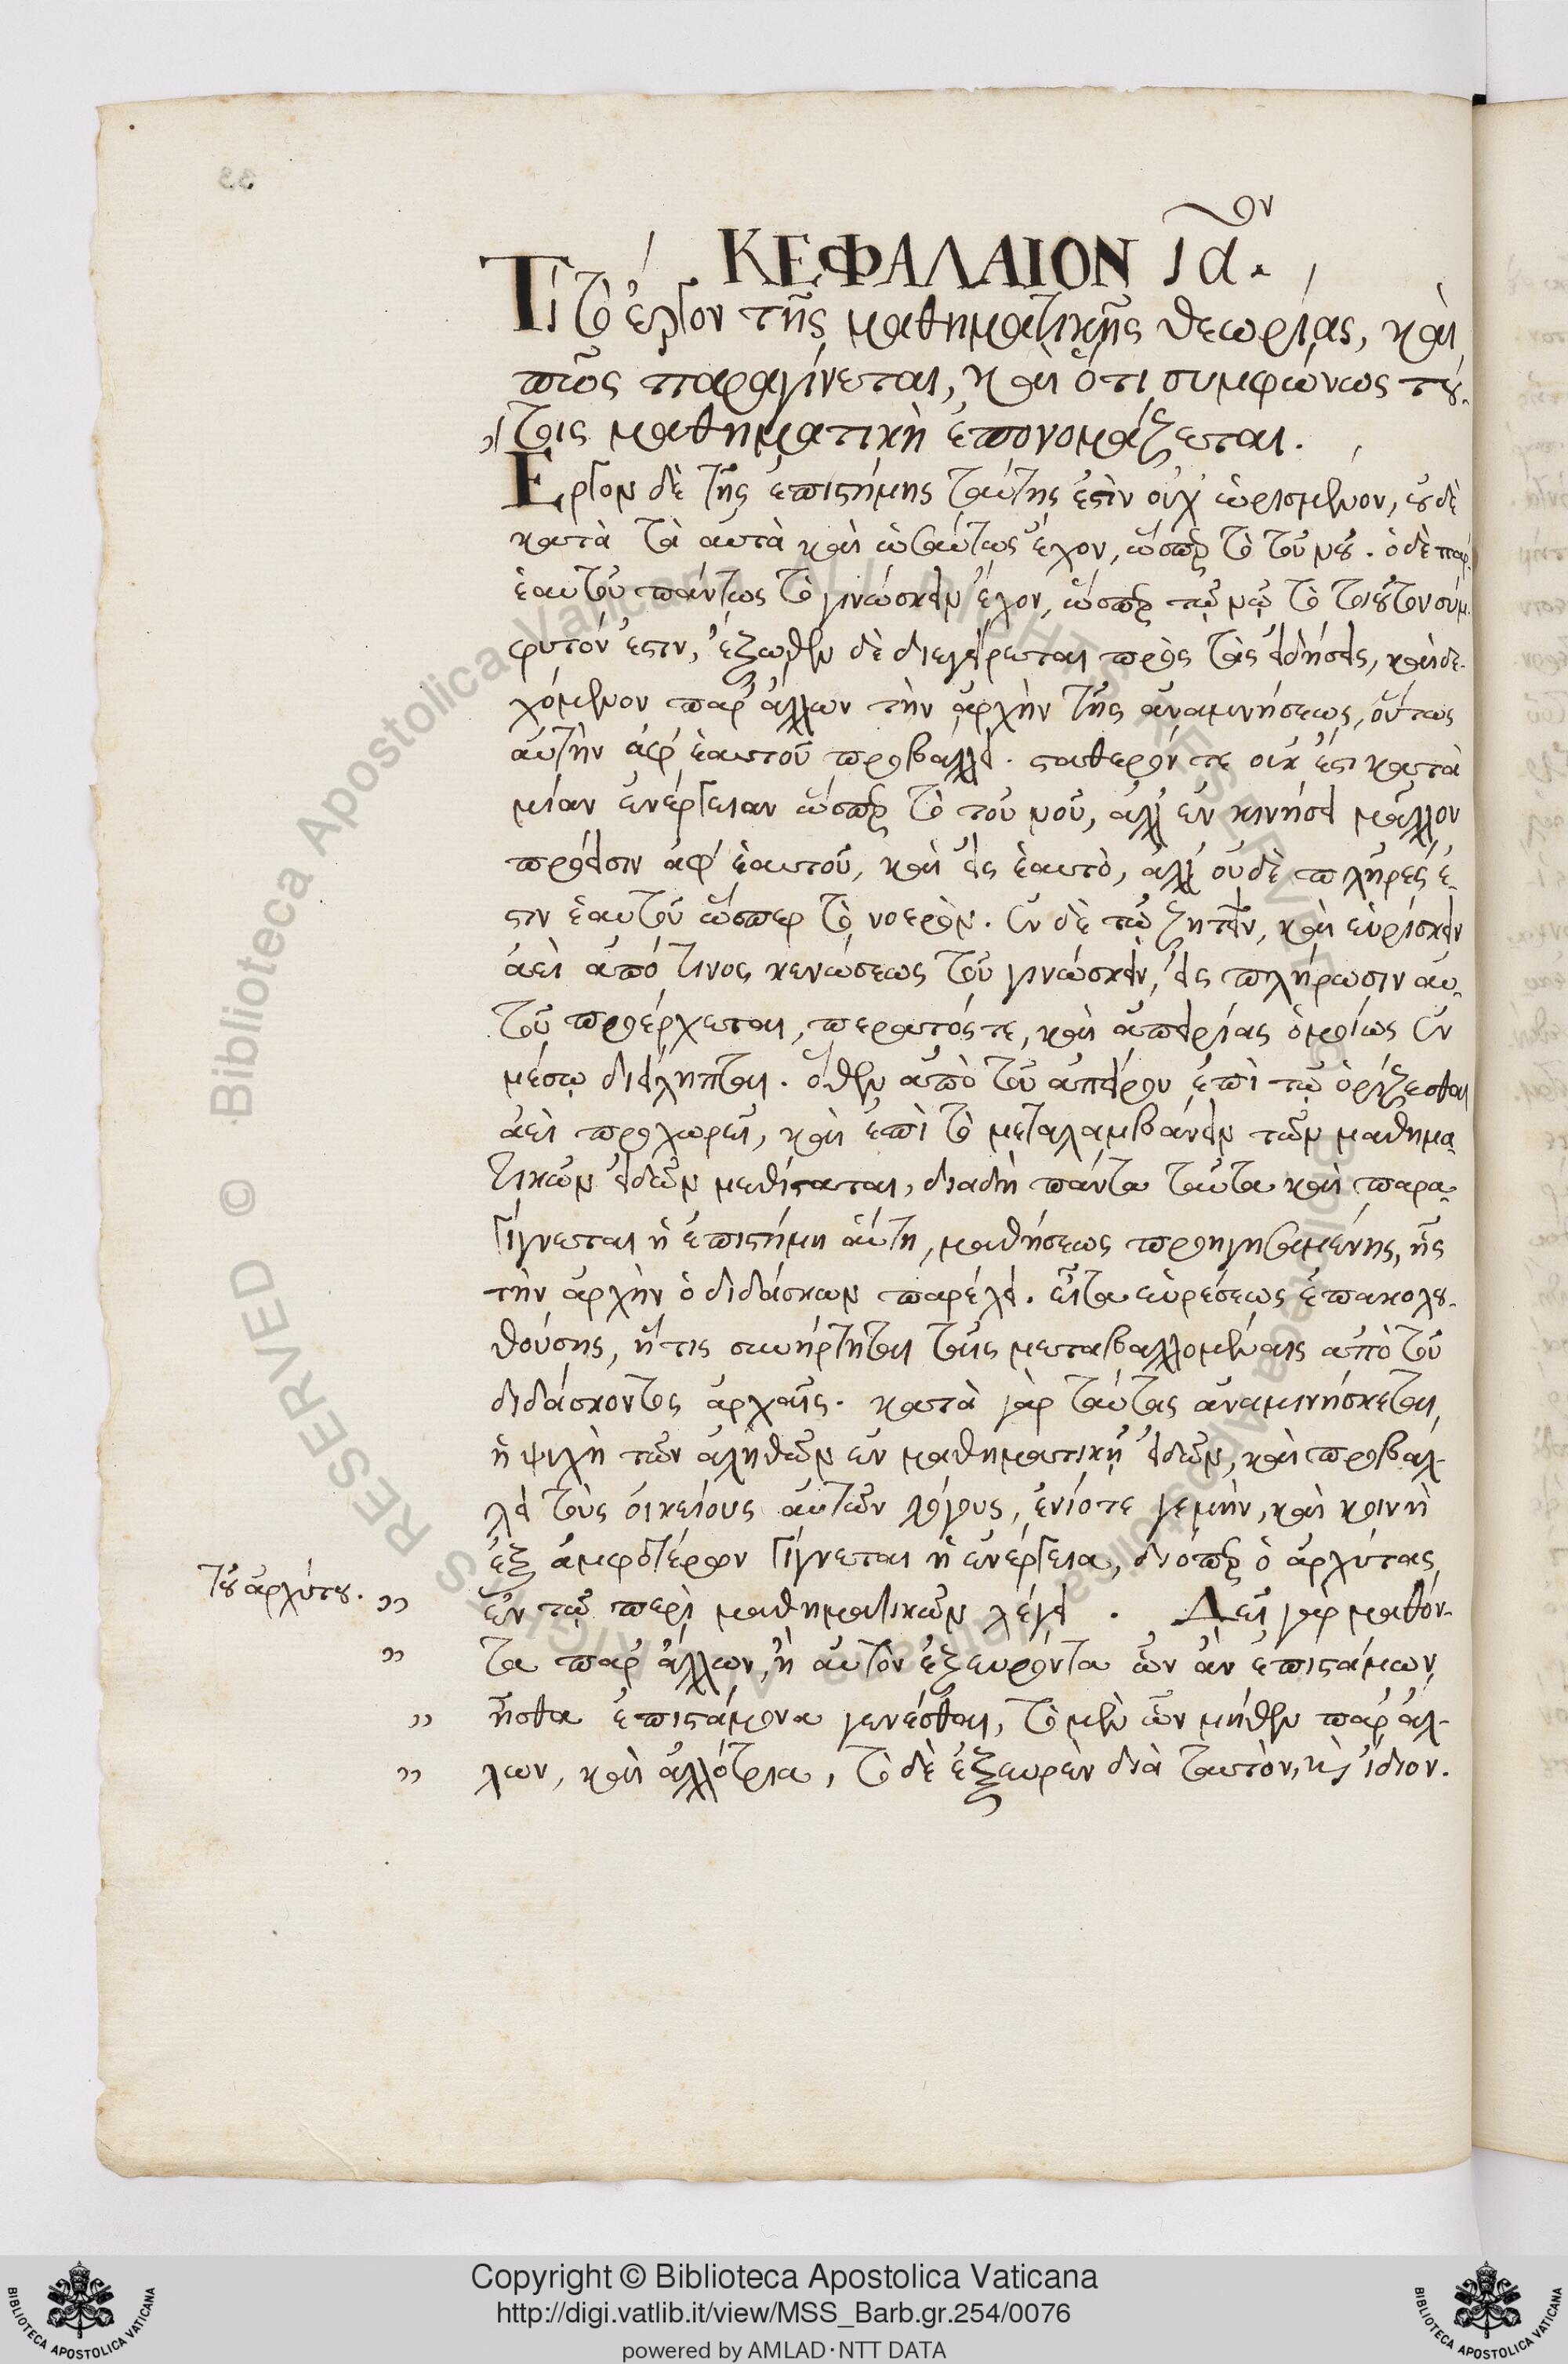 33
ΚΕΦΑΛΑΙΟΝ ιαον.
Τί τὸ ἔργον τῆς μαθηματικῆς θεωρίας, καὶ
πῶς παραγίνεται, καὶ ὅτι συμφώνως τού-
τοις μαθηματικὴ ἐπονομάζεται.
Ἔργον δὲ τῆς ἐπιστήμης ταύτης ἐστὶν οὐχ ὡρισμένον, οὐδὲ
κατὰ τὰ αὐτὰ καὶ ὡσαύτως ἔχον, ὥσπερ τὸ τοῦ νοῦ. ὁδὲ παρ'
ἑαυτοῦ πάντως τὸ γινώσκειν ἔχον, ὥσπερ τῷ νῷ τὸ τοιοῦτον σύμ-
φυτόν ἐστιν, ἔξωθεν δὲ διεγείρεται πρὸς τὰς εἰδήσεις, καὶ δε-
χόμενον παρ' ἄλλων τὴν ἀρχὴν τῆς ἀναμνήσεως, οὕτως
αὐτὴν ἀφ' ἑαυτοῦ προβάλλει. σταθερόν τε οὐκ ἔστι κατὰ
μίαν ἐνέργειαν ὥσπερ τὸ τοῦ νοῦ, ἀλλ' ἐν κινήσει μᾶλλον
πρόεισιν ἀφ' ἑαυτοῦ, καὶ εἰς ἑαυτὸ, ἀλλ' οὐδὲ πλῆρές ἐ-
στιν ἑαυτοῦ ὥσπερ τὸ νοερόν. ἐν δὲ τῷ ζητεῖν, καὶ εὑρίσκειν
ἀεὶ ἀπό τινος κενώσεως τοῦ γινώσκειν, εἰς πλήρωσιν αὐ-
τοῦ προέρχεται, πέρατός τε, καὶ ἀπειρίας ὁμοίως ἐν
μέσῳ διείληπται. ὅθεν ἀπὸ τοῦ ἀπείρου ἐπὶ τῷ ὁρίζεσθαι
ἀεὶ προχωρεῖ, καὶ ἐπὶ τὸ μεταλαμβάνειν τῶν μαθημα-
τικῶν εἰδῶν μεθίσταται, διαδὴ πάντα ταῦτα καὶ παρα-
γίγνεται ἡ ἐπιστήμη αὕτη, μαθήσεως προηγησαμένης, ἧς
τὴν ἀρχὴν ὁ διδάσκων παρέχει. εἶτα εὑρέσεως ἐπακολου-
θούσης, ἥτις συνήρτηται ταῖς μεταβαλλομέναις ἀπὸ τοῦ
διδάσκοντος ἀρχαῖς. κατὰ γὰρ ταύτας ἀναμινήσκεται
ἡ ψυχὴ τῶν ἀληθῶν ἐν μαθηματικῇ εἰδῶν, καὶ προβάλ-
λει τοὺς οἰκείους αὐτῶν λόγους, ἐνίοτε γεμὴν, καὶ κοινὴ
ἐξ ἀμφοτέρων γίγνεται ἡ ἐνέργεια, διόπερ ὁ ἀρχύτας
τοῦ ἀρχύτου. ,, ἐν τῷ περὶ μαθηματικῶν λέγει . Δεῖ γὰρ μαθόν-
,, τα παρ' ἄλλων, ἢ αὐτὸν ἐξευρόντα ὧν ἀν ἐπιστάμων
,, ἦσθα ἐπιστάμονα γενέσθαι, τὸ μὲν ὦν μήθεν παρ' ἀλ-
,, λων, καὶ ἀλλότρια, τὸ δὲ ἐξευρὲν διὰ ταυτὸν, καὶ ἴδιον.
© Biblioteca Apostolica Vaticana ALL RIGHTS RESERVED
Copyright © Biblioteca Apostolica Vaticana
http://digi.vatlib.it/view/MSS_Barb.gr.254/0076
powered by AMLAD·NTT DATA
BIBLIOTECA APOSTOLICA VATICANA
BIBLIOTECA APOSTOLICA VATICANA